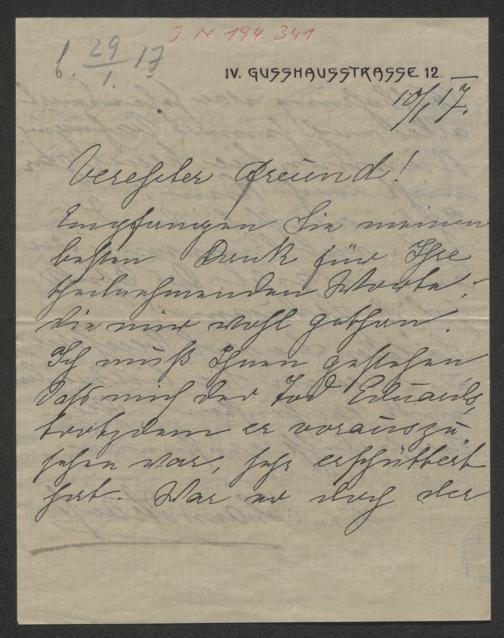 J. N. 194.341
b. 29/1. 17
IV. GUSSHAUSSTRASSE 12.
10/1 17.
Verehrter Freund!
Empfangen Sie meinen
besten Dank für Ihre
theilnehmenden Worte,
die mir wohl gethan.
Ich muß Ihnen gestehen
daß mich der Tod Eduards,
trotzdem er vorauszu
sehen war, sehr erschüttert
hat. War er doch der